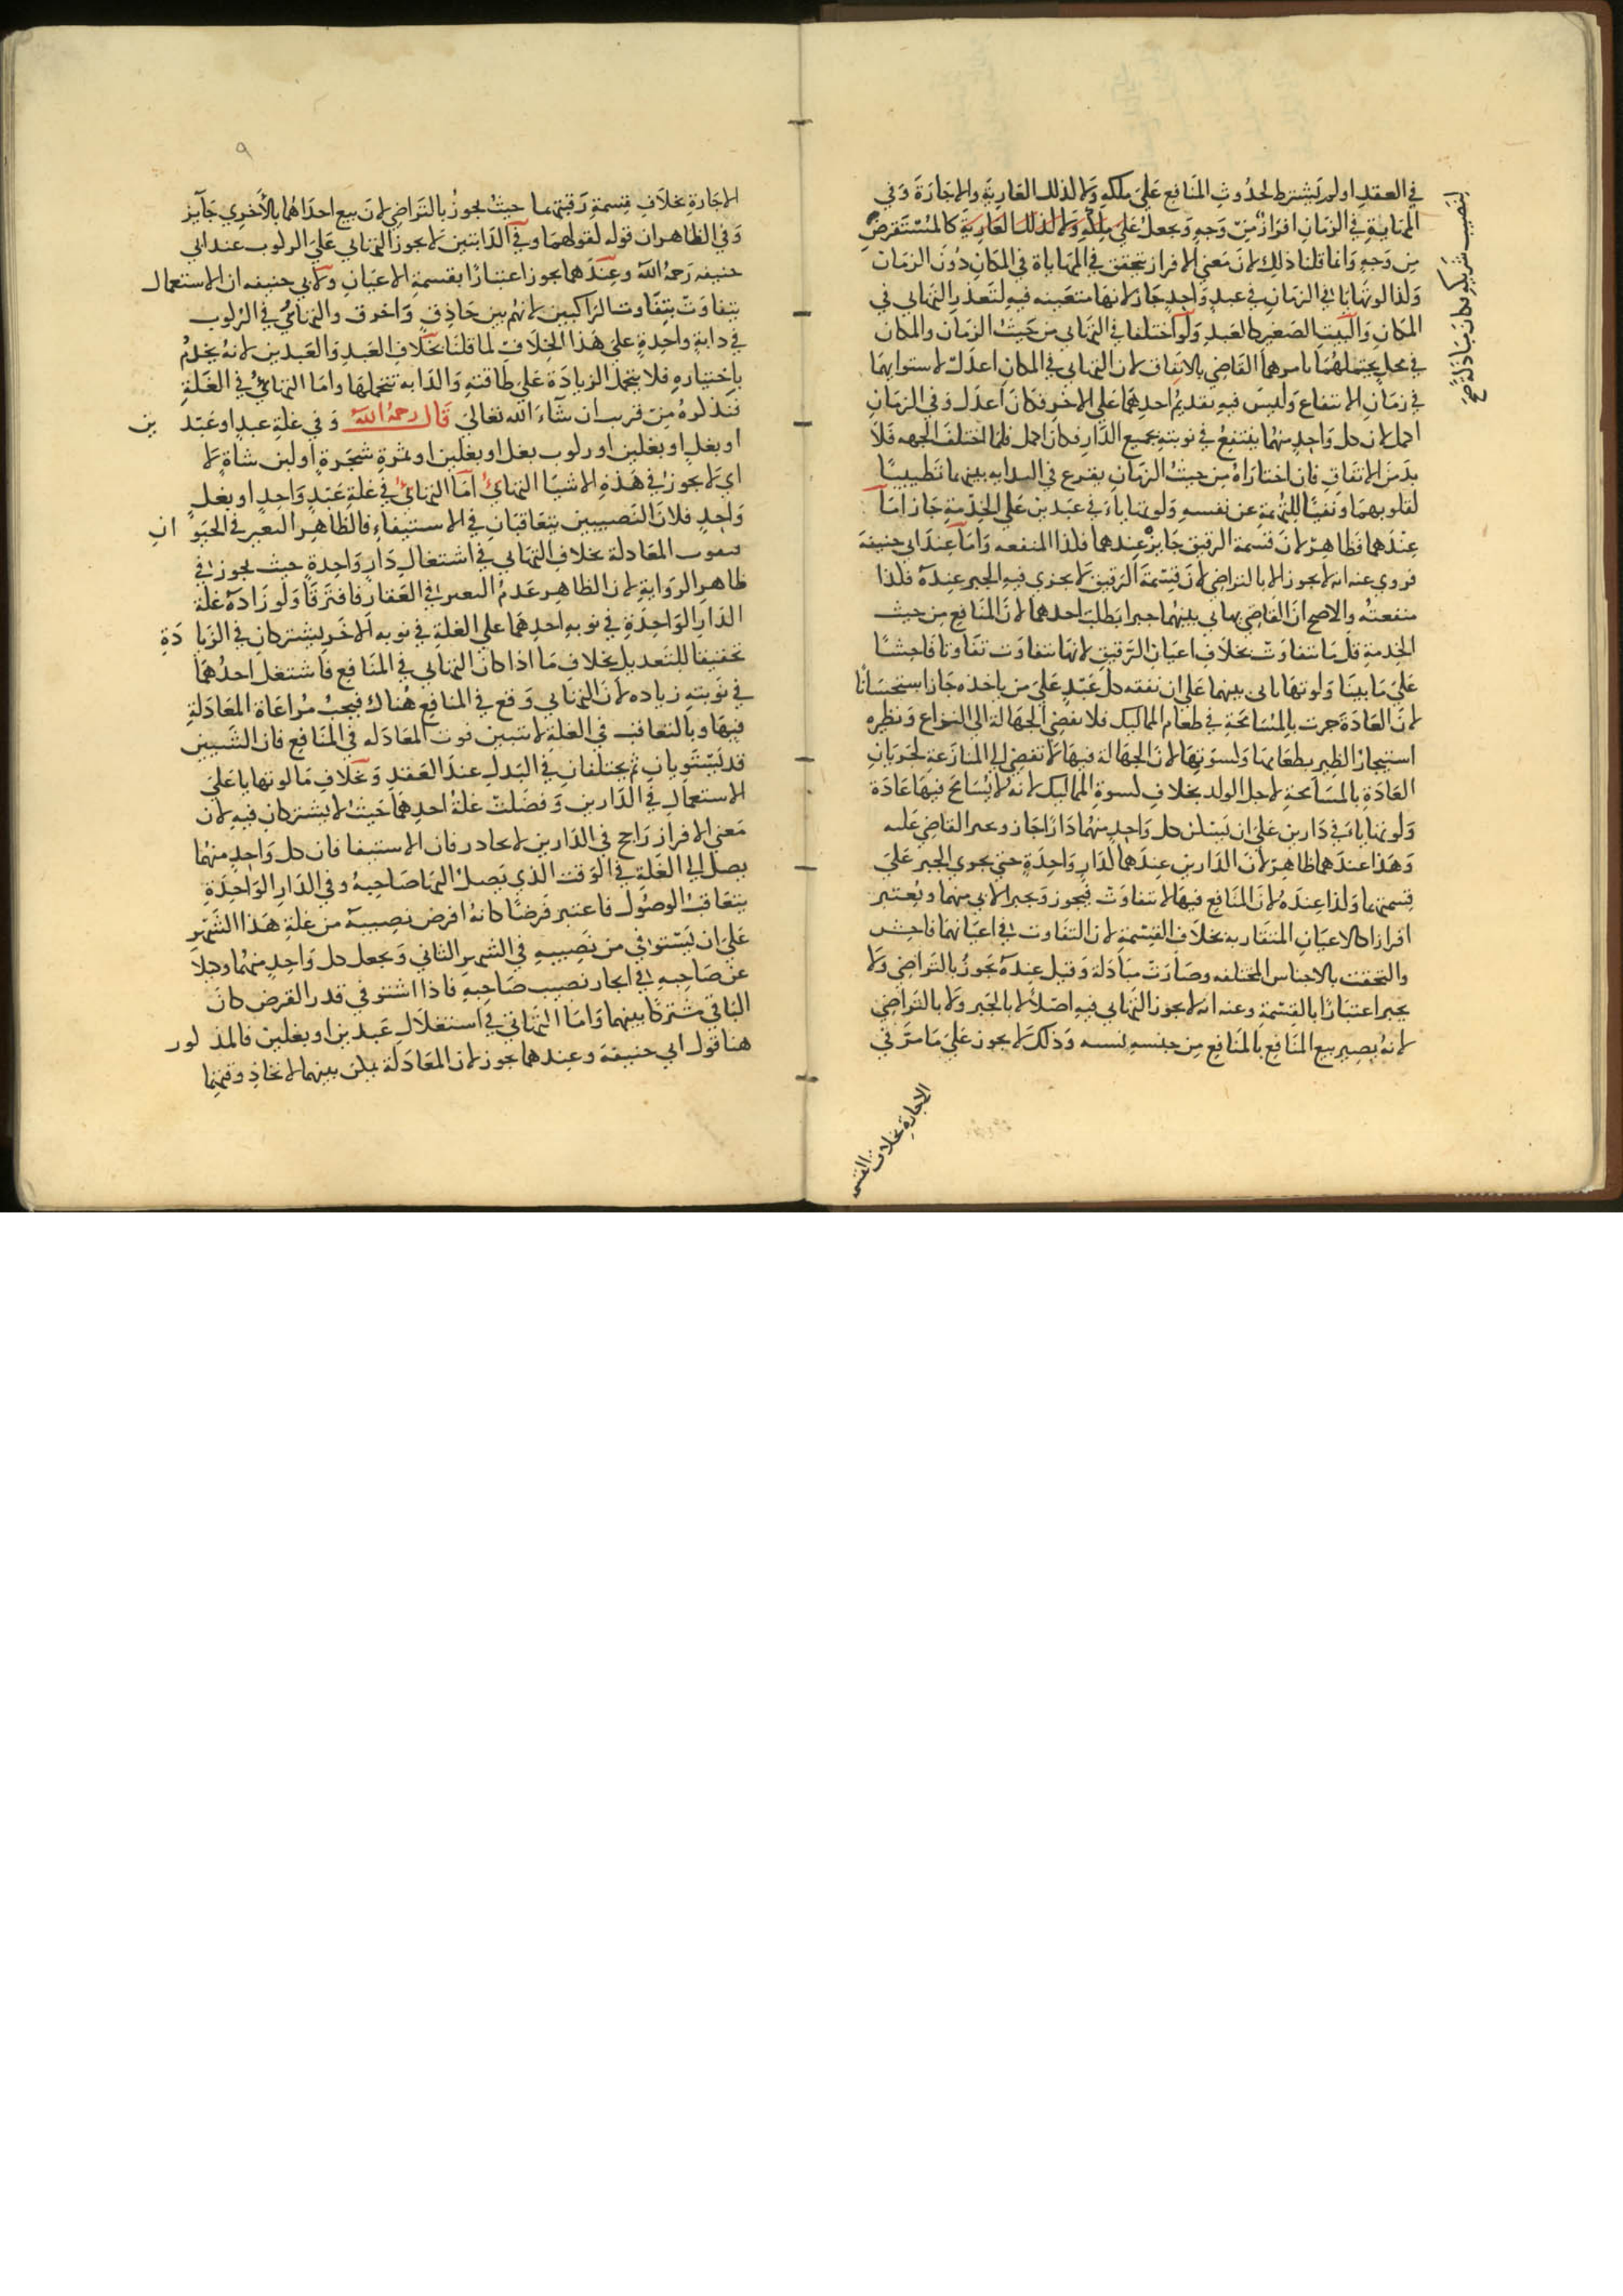 في العقد او لم يشترط لحدوث المنافع على ملكه ولا لذلك العارية والاجارة وفي
المهاياة في الزمان افراز من وجه ويجعل على ملكه ولا لذلك العارية كالمستقرض
من وجه وانما قلنا ذلك لان معني الافراز يتحقق في المهاياة في المكان دون الزمان
ولذا لو تهايآ في الزمان في عبد واحد جاز لانها متعينه فيه لتعذر التهايي في
المكان والبيت الصغير كالعبد ولو اختلفا في التهايي من حيث الزمان والمكان
في محل يحتملهما يامرهما القاضي بالاتفاق لان التهايي في المكان اعدل لاستوايهما
في زمان الانتفاع وليس فيه تقديم احدهما على الاخر فكان اعدل وفي الزمان
اكمل لان كل واحد منهما ينتفع في نوبته بجميع الدار فكان اكمل فلما اختلف الجهه فلا
بد من الاتفاق فان اختاراه من حيث الزمان يقرع في البدايه بينهما تطييبا
لقلوبهما ونفيا للتهمة عن نفسه ولو تهايآء في عبدين على الخدمة جاز اما
عندهما فظاهر لان قسمة الرقيق جايز عندهما فكذا المنفعه واما عند ابي حنيفة
فروي عنه انه لا يجوز الا بالتراضي لان قسمة الرقيق لا يجري فيه الجبر عنده فكذا
منفعته والاصح ان القاضي يهايي بينهما جبرا بطلب احدهما لان المنافع من حيث
الخدمة قل ما تتفاوت بخلاف اعيان الرقيق لانها تتفاوت تفاوتا فاحشا
على ما بينا ولو تهايا بينهما على ان نفقه كل عبد على من ياخذه جاز استحسانا
لان العادة جرت بالمسامحة في طعام المماليك فلا تفضي الجهالة الى النزاع ونظيره
استيجار الظير بطعامها وكسوتها لان الجهالة فيها لا تفضي الي المنازعة لجريان
العادة بالمسامحة لاجل الولد بخلاف كسوة المماليك لانه لا يسامح فيها عادة
ولو تهايا في دارين على ان يسكن كل واحد منهما دارا جاز ويجبر القاضي عليه
وهذا عندهما ظاهر لان الدارين عندهما كدار واحدة حتي يجري الجبر على
قسمتهما وكذا عنده لان المنافع فيها لا تتفاوت فيجوز ويجبر الابي منهما ويعتبر
افرازا كالاعيان المتقاربه بخلاف القسمة لان التفاوت في اعيانهما فاحش
والتحقت بالاجناس المختلفه وصارت مبادلة وقيل عنده يجوز بالتراضي ولا
يجبر اعتبارا بالقسمة وعنه انه لا يجوز التهايي فيه اصلا لا بالجبر ولا بالتراضي
لانه يصير بيع المنافع بالمنافع من جنسه نسيه وذلك لا يجوز على ما مر في
الاجارة بخلاف القسم
بنصيب شريكه كان مبادلة صح
٩
الاجارة بخلاف قسمة رقبتهما حيث يجوز بالتراضي لان بيع احداهما بالاخري جايز
وفي الظاهر ان قوله كقولهما وفي الدابتين لا يجوز التهايي على الركوب عند ابي
حنيفه رحمه الله وعندهما يجوز اعتبارا بقسمة الاعيان ولابي حنيفه ان الاستعمال
يتفاوت بتفاوت الراكبين لانهم بين حاذق واخرق والتهايؤ في الركوب
في دابة واحدة على هذا الخلاف لما قلنا بخلاف العبد والعبدين لانه يخدم
باختياره فلا يتحمل الزيادة على طاقته والدابه تتحملها واما التهايؤ في الغلة
فنذكره من قريب ان شآء الله تعالى قال رحمه الله وفي غلة عبد او عبدين
او بغل او بغلين او ركوب بغل او بغلين او ثمرة شجرة او لبن شاة لا
اي لا يجوز في هذه الاشيا التهايئ اما التهايئ في غلة عبد واحد او بغل
واحد فلان النصيبين يتعاقبان في الاستيفاء فالظاهر التغير في الحيوان
فتفوت المعادلة بخلاف التهايي في استغلال دار واحدة حيث يجوز في
ظاهر الرواية لان الظاهر عدم التغير في العقار فافترقا ولو زاده غلة
الدار الواحدة في نوبه احدهما على الغلة في نوبه الاخر يشتركان في الزيادة
تحقيقا للتعديل بخلاف ما اذا كان التهايي في المنافع فاستغل احدهما
في نوبته زياده لان التهايي وقع في المنافع هناك فيجب مراعاة المعادلة
فيها وبالتعاقب في الغلة لا يتبين فوت المعادله في المنافع فان الشيين
قد يستويان ثم يختلفان في البدل عند العقد وبخلاف ما لو تهايا على
الاستعمال في الدارين وفضلت غلة احدهما حيث لا يشتركان فيه لان
معني الافراز راجح في الدارين لاتحاد زمان الاستيفا فان كل واحد منهما
يصل الي الغلة في الوقت الذي يصل اليها صاحبه وفي الدار الواحدة
يتعاقب الوصول فاعتبر قرضا كانه اقرض نصيبه من غلة هذا الشهر
على ان يستوفي من نصيبه في الشهر الثاني ويجعل كل واحد منهما وكيلا
عن صاحبه في ايجار نصيب صاحبه فاذا استوفي قدر القرض كان
الباقي مشتركا بينهما واما التهايي في استغلال عبدين او بغلين فالمذكور
هنا قول ابي حنيفة وعندهما يجوز لان المعادلة يمكن بينهما لاتحاد وقتهما